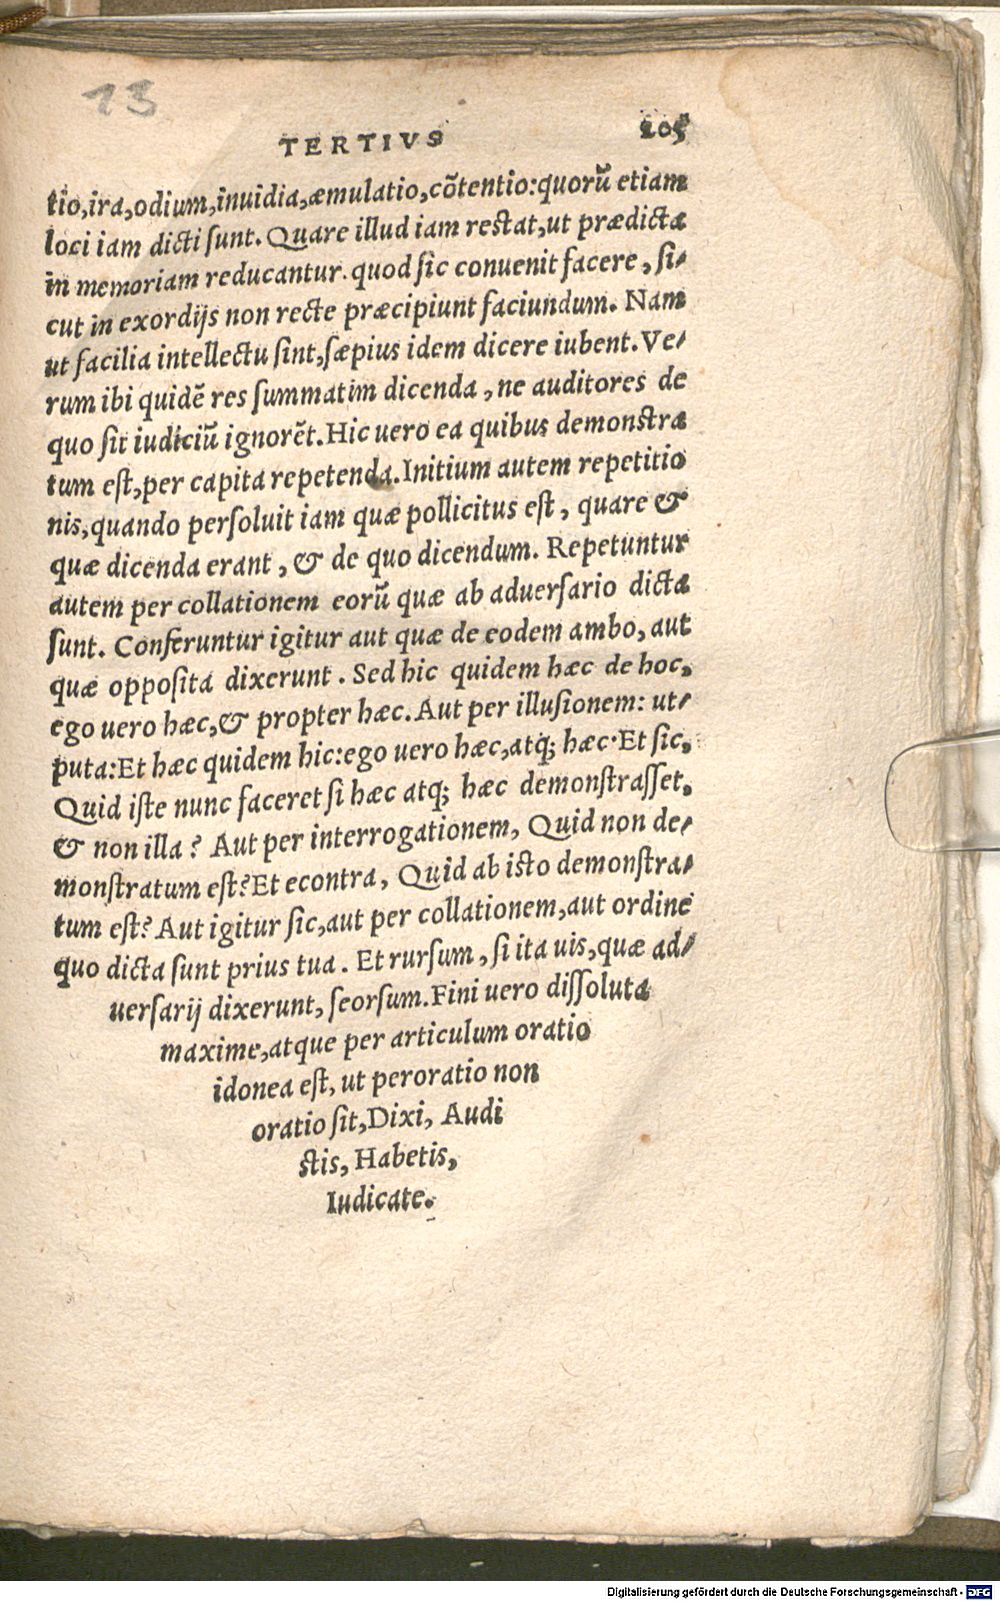 13
TERTIVS 205
tio,ira,odium,inuidia,æmulatio,cõtentio:quorũ etiam
loci iam dicti sunt. Quare illud iam restat,ut prædicta
in memoriam reducantur. quod sic conuenit facere, si-
cut in exordijs non recte præcipiunt faciundum. Nam
ut facilia intellectu sint,sæpius idem dicere iubent. Ve-
rum ibi quidẽ res summatim dicenda, ne auditores de
quo sit iudiciũ ignorẽt. Hic uero ea quibus demonstra
tum est,per capita repetenda. Initium autem repetitio
nis,quando persoluit iam quæ pollicitus est, quare &
quæ dicenda erant, & de quo dicendum. Repetuntur
autem per collationem eorũ quæ ab aduersario dicta
sunt. Conferuntur igitur aut quæ de eodem ambo, aut
quæ opposita dixerunt. Sed hic quidem hæc de hoc,
ego uero hæc,& propter hæc. Aut per illusionem: ut-
puta:Et hæc quidem hic:ego uero hæc,atq; hæc. Et sic,
Quid iste nunc faceret si hæc atq; hæc demonstrasset,
& non illa? Aut per interrogationem, Quid non de-
monstratum est? Et econtra, Quid ab isto demonstra-
tum est? Aut igitur sic,aut per collationem,aut ordine
quo dicta sunt prius tua. Et rursum, si ita uis,quæ ad-
uersarij dixerunt, seorsum. Fini uero dissoluta
maxime,atque per articulum oratio
idonea est, ut peroratio non
oratio sit, Dixi, Audi
stis, Habetis,
Iudicate.
Digitalisierung gefördert durch die Deutsche Forschungsgemeinschaft - DFG